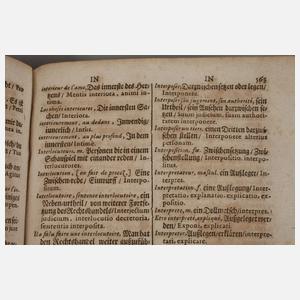 IN
IN
363
interieur de l'ame, Das innerste des Hertzens/ Mentis interiora, animi intima.
Les choses interieures, Die innersten Sachen/ Interiora.
interieurement, au dedans, Inwendig/ innerlich/ Intus.
interieurement, au plus profond, In dem innersten/ Intimè.
Interlocuteurs, m. Personen die in einem Schauspiel mit einander reden/ Interlocutores.
Interlocution, [en fait de procez.] Eine Zwischen-rede/ Einwurff/ Interpositum.
Interlocutoire, sentence interlocutoire, ein Neben-urtheil/ von weiterer Fortsetzung des Rechtshandels/ Interjectium judicium, interlocutio decretoria, sententia interposita.
Il a falu faire une interlocutoire, Man hat den Rechtshandel weiter
Interposer, Darzwischen setzen oder legen/ Interponere.
Interposer son jugement, son authorité, sein Urtheil/ sein Ansehen darzwischen setzen/ Suum judicium, suam authoritatem interponere.
Interposer un tiers, einen Dritten darzwischen stellen/ Interponere alterum, apponere.
Interposition, f. Zwischensetzung/ Zwischenstellung/ Interpositio, interpositus.
Interpretateur, masul. ein Außleger/ Interpres.
Interpretation, f. eine Außlegung/ Interpretatio, explanatio, expositio, explicatio.
Interprete, m. ein Dollmetsch/ interpres.
Estre interpreté, expliqué, Außgeleget werden/ Exponi, explicari.
Interpreter, Außlegen/ erklären/ interpretari, explicare.